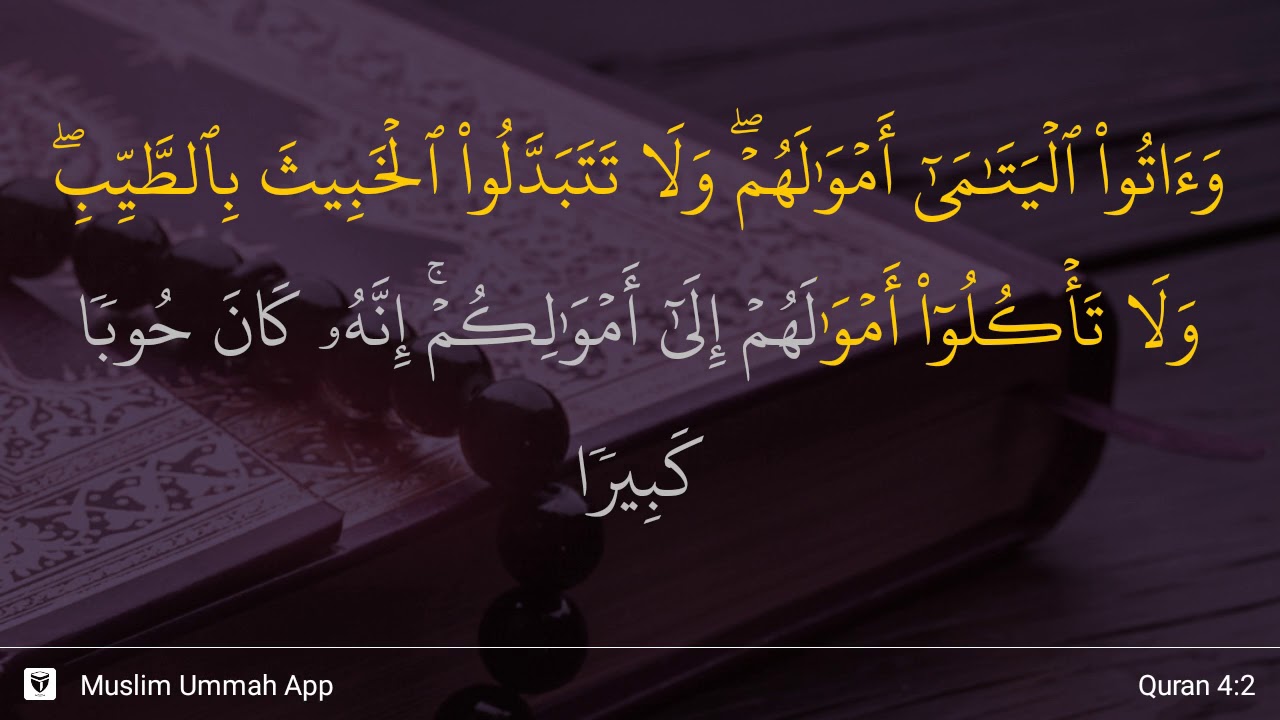 وَءَاتُوا۟ ٱلْيَتَـٰمَىٰٓ أَمْوَٰلَهُمْ ۖ وَلَا تَتَبَدَّلُوا۟ ٱلْخَبِيثَ بِٱلطَّيِّبِ ۖ
وَلَا تَأْكُلُوٓا۟ أَمْوَٰلَهُمْ إِلَىٰٓ أَمْوَٰلِكُمْ ۚ إِنَّهُۥ كَانَ حُوبًا
كَبِيرًا
Muslim Ummah App
Quran 4:2